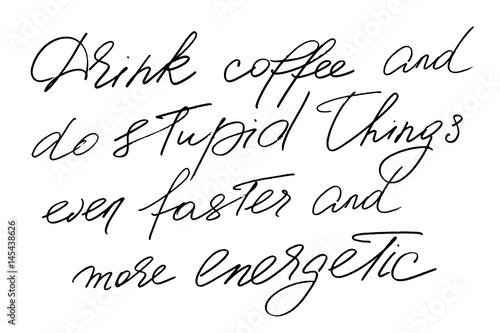 Drink coffee and
do stupid things
even faster and
more energetic
Adobe Stock | #145438626